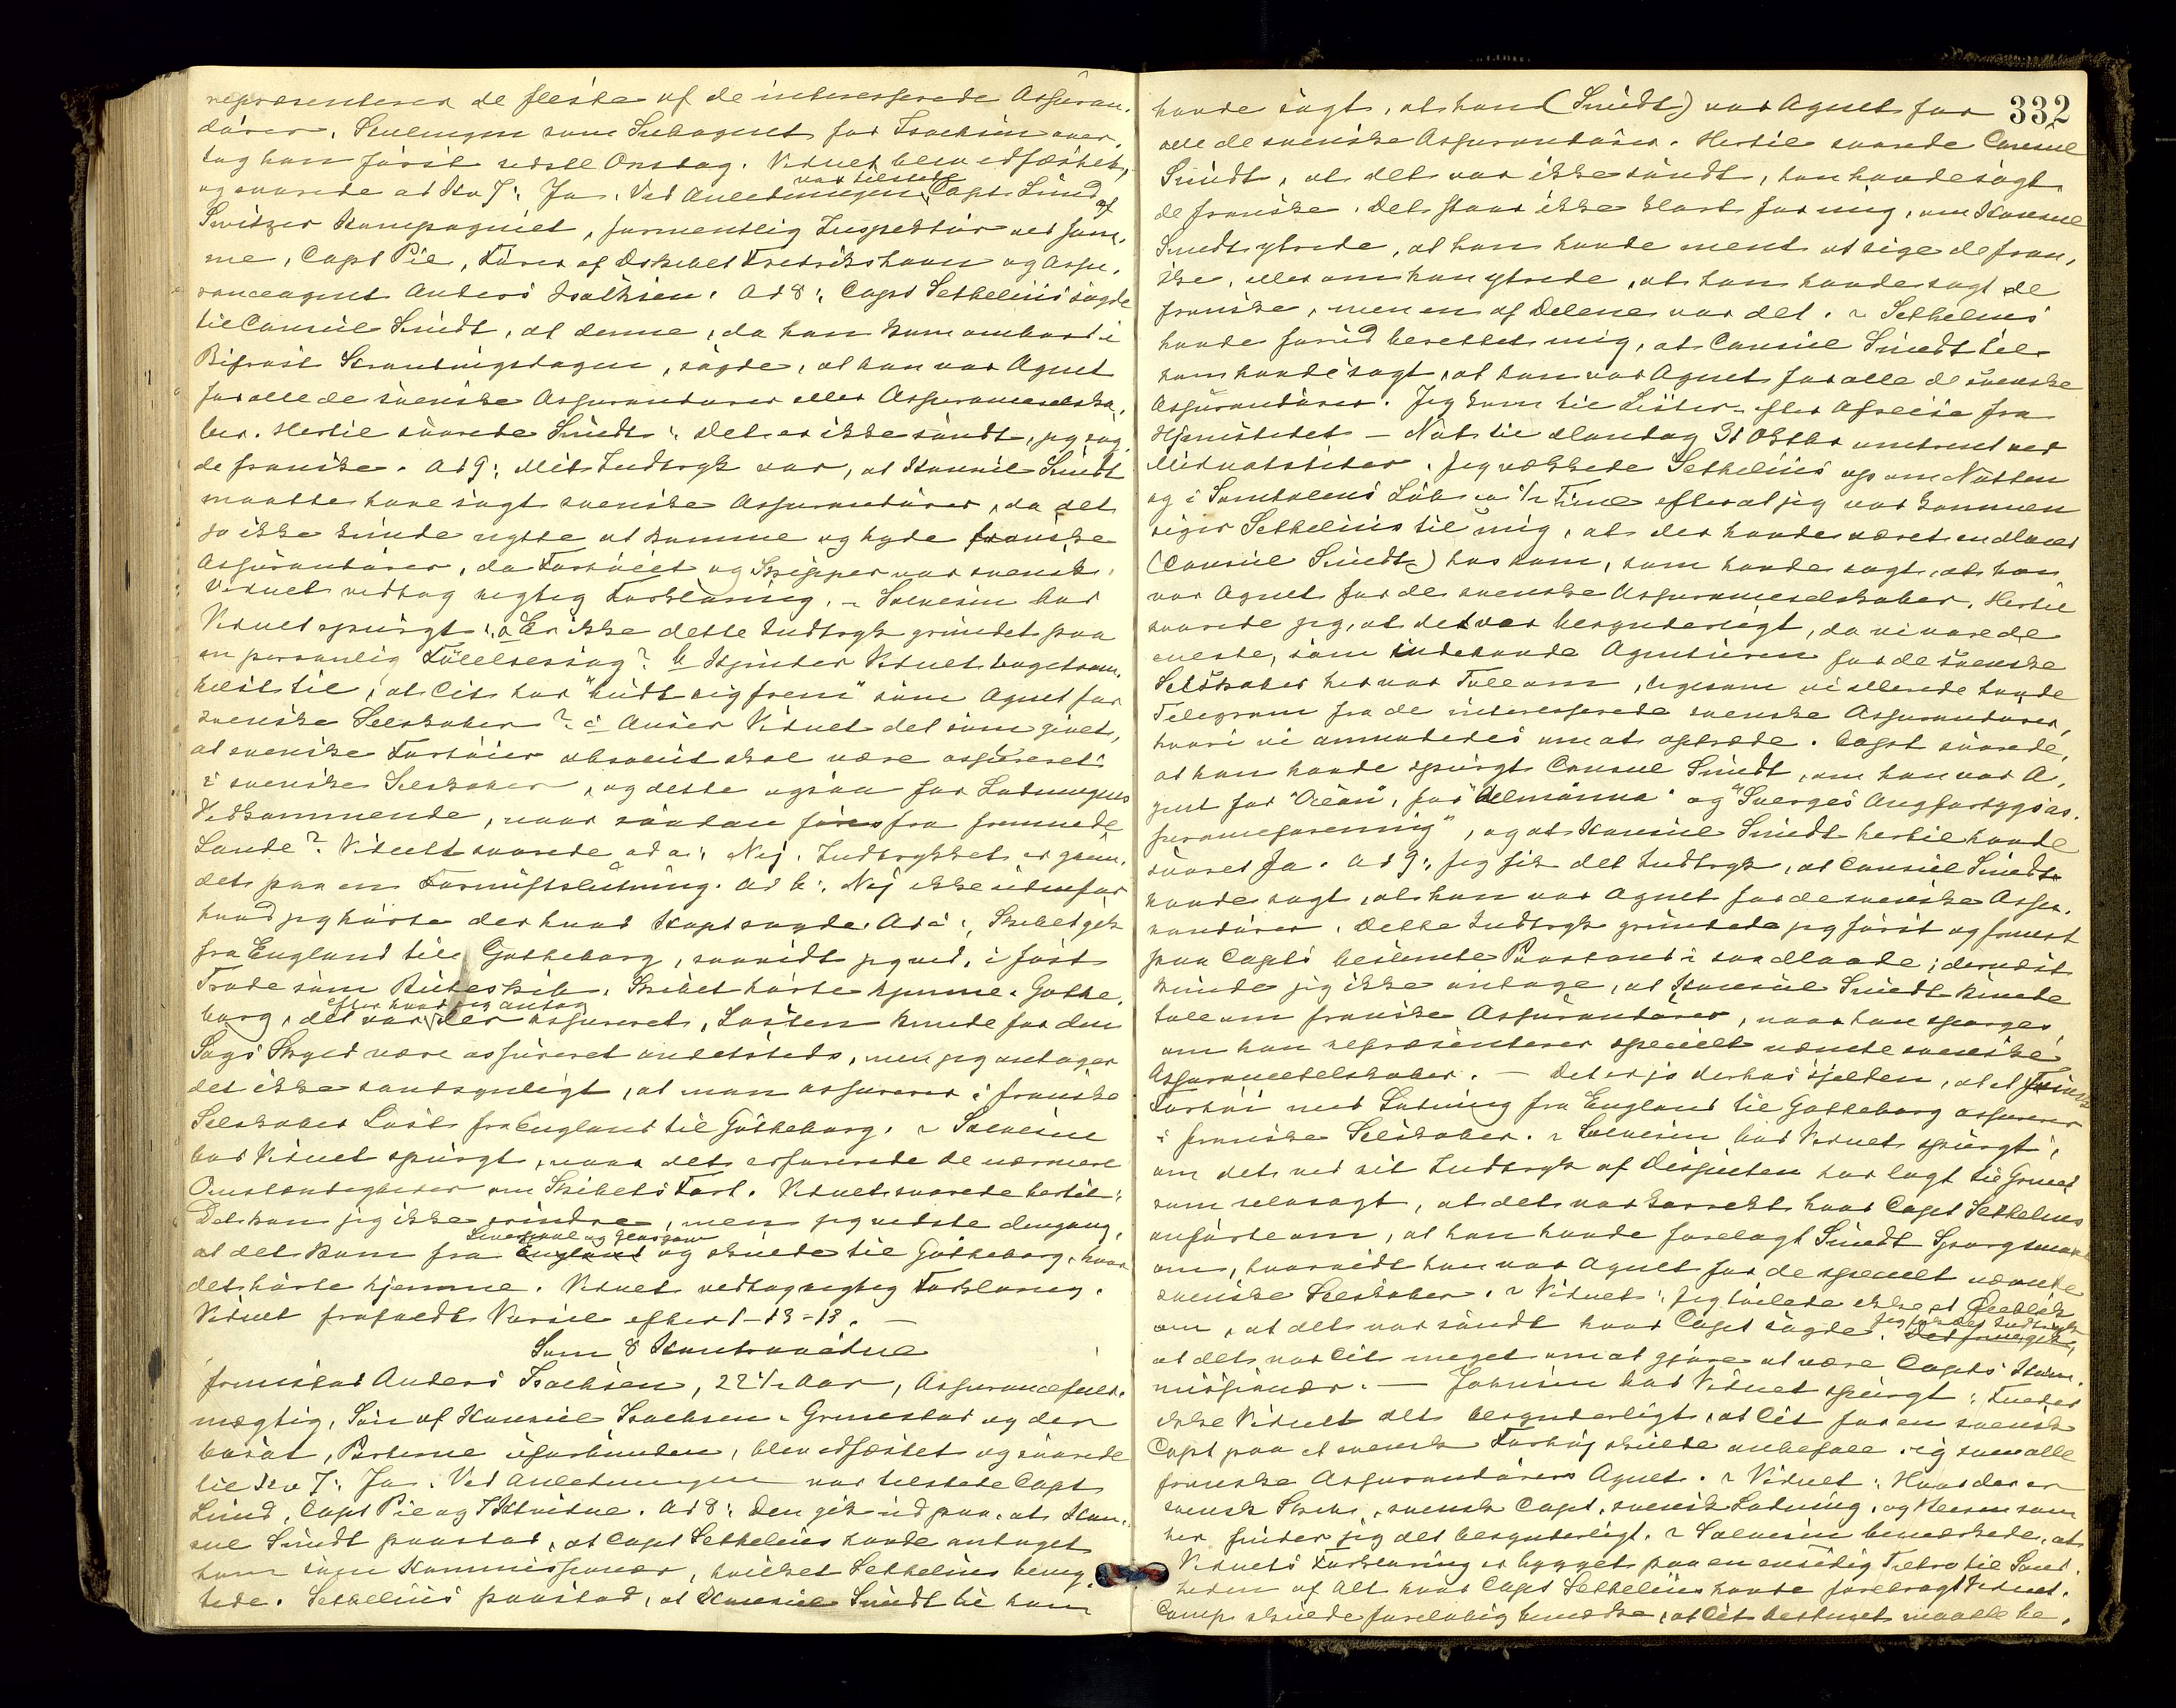 repræsenterer de fleste af de interesserede Assuran-
dører. Stillingen som Subagent for Isachsen over-
tog han først sidste Onsdag. Vidnet blev edfæstet,
og svarede ad Kv 7: Ja. Ved Anledningen var tilstede Capt Lund af
Switzer Kompagniet, formentlig Inspektør ved sam-
me, Capt Pie, Fører af Dskibet Fredrikshavn og Assu-
ranceagent Anders Isachsen. Ad 8: Capt Sethelius sagde
til Consul Smidt, at denne, da han kom ombord i
Bifrost Strandingsdagen, sagde, at han var Agent
for alle de svenske Assurandører eller Assuranceselska-
ber. Hertil svarede Smidt: Det er ikke sandt, jeg sag-
de franske. Ad 9: Mit Indtryk var, at Konsul Smidt
maatte have sagt svenske Assurandører, da det
jo ikke kunde nytte at komme og byde franske
Assurandører, da Fartøiet og Skipper var svensk.
Vidnet vedtog rigtig Forklaring. - Salvesen bad
Vidnet spurgt: a Er ikke dette Indtryk grundet paa
en personlig Følelsessag? b Kjender Vidnet noget som-
helst til, at Cit har "budt sig frem" som Agent for
svenske Selskaber? c Anser Vidnet det som givet,
at svenske Fartøier absolut skal være assureret
i svenske Selskaber, og dette ogsaa for Ladningens
Vedkommende, naar saadan føres fra fremmede
Lande? Vidnet svarede ad a: Nej. Indtrykket er grun-
det paa en Fornuftslutning. Ad b: Nej ikke udenfor
hvad jeg hørte der hvad Kapt sagde. Ad c: Skibet gik
fra England til Gøtheborg, saavidt jeg ved, i fast
Trade som Ruteskib. Skibet hørte hjemme i Gøthe-
borg, det var efter hvad jeg antog der assureret, Lasten kunde for den
Sags Skyld være assureret andetsteds, men jeg antager
det ikke sandsynligt, at man assurerer i franske
Selskaber Last fra England til Gøtheborg. - Salvesen
bad Vidnet spurgt, naar det erfarede de nærmere
Omstændigheder om Skibets Fart. Vidnet svarede hertil:
Det kan jeg ikke erindre, men jeg vidste dengang,
at det kom fra England Liverpool og Glasgow og skulde til Gøtheborg, hvor
det hørte hjemme. Vidnet vedtog rigtig Forklaring.
Vidnet frafaldt Varsel efter 1-13-13. —
Som 8 Kontravidne
fremstod Anders Isachsen, 22 1/2 Aar, Assurancefuld-
mægtig, Søn af Konsul Isachsen, Grimstad og der
bosat, Parterne uforbunden, blev edfæstet og svarede
til Kv 7: Ja. Ved Anledningen var tilstede Capt
Lund, Capt Pie og 7 Ktrvidne. Ad 8: Den gik ud paa, at Kon-
sul Smidt paastod, at Capt Sethelius havde antaget
ham som Kommissionær, hvilket Sethelius beneg-
tede. Sethelius paastod, at Konsul Smidt til ham
332
havde sagt, at han (Smidt) var Agent for
alle de svenske Assurandører. Hertil svarede Consul
Smidt, at det var ikke sandt, han havde sagt
de franske. Det staar ikke klart for mig, om Konsul
Smidt ytrede, at han havde ment at sige de fran-
ske, eller om han ytrede, at han havde sagt de
franske, men en af Delene var det. - Sethelius
havde forud berettet mig, at Consul Smidt til
ham havde sagt, at han var Agent for alle de svenske
Assurandører. Jeg kom til Lister - efter Afreise fra
Hjemstedet - Nat til Mandag 31 Oktbr omtrent ved
Midnatstider. Jeg vækkede Sethelius op om Natten
og i Samtalens Løb ca 1/2 Time efter at jeg var kommen
siger Sethelius til mig, at der havde været en Mand
(Consul Smidt) hos ham, som havde sagt, at han
var Agent for de svenske Assuranceselskaber. Hertil
svarede jeg, at det var besynderligt, da vi var de
eneste, som indehavde Agenturen for de svenske
Selskaber her var Tale om, ligesom vi allerede havde
Telegram fra de interesserede svenske Assurandører,
hvori vi anmodedes om at optræde. Capt svarede,
at han havde spurgt Consul Smidt, om han var A-
gent for "Ocean", for "Allmänna" og "Sverges Angfartygsas-
suranceforening", og at Konsul Smidt hertil havde
svaret Ja. Ad 9: Jeg fik det Indtryk, at Consul Smidt
havde sagt, at han var Agent for de svenske Assu-
randører. Dette Indtryk grundede jeg først og fremst
paa Capts bestemte Paastand i saa Maade; dernæst
kunde jeg ikke antage, at Konsul Smidt kunde
tale om franske Assurandører, naar han spørges,
om han repræsenterer specielt nævnte svenske
Assuranceselskaber. — Det er jo derhos sjelden, at et svensk
Fartøi med Ladning fra England til Gøtheborg assurerer
i franske Selskaber. - Salvesen bad Vidnet spurgt,
om det ved sit Indtryk af Disputen har lagt til Grund
som selvsagt, at det var korrekt hvad Capt Sethelius
anførte om, at han havde forelagt Smidt Spørgsmaal
om, hvorvidt han var Agent for de specielt nævnte
svenske Selskaber. - Vidnet: Jeg tvilede ikke et Øieblik
om, at det var sandt hvad Capt sagde. Jeg fik det Indtryk
at det var Cit meget om at gjøre at være Capts Kom-
missionær. — Johnsen bad Vidnet spurgt: Finder
ikke Vidnet det besynderligt, at Cit for en svensk
Capt paa et svensk Fartøj skulde anbefale sig som alle
franske Assurandørers Agent. - Vidnet: Hvor der er
svensk Skib, svensk Capt, svensk Ladning, og Reisen som
her finder jeg det besynderligt. - Salvesen bemærkede, at
Vidnets Forklaring er bygget paa en ensidig Tiltro til Sand-
heden af Alt hvad Capt Sethelius havde foredraget Vidnet.
Comp. skulde foreløbig bemærke, at Cit bestemt maatte be-